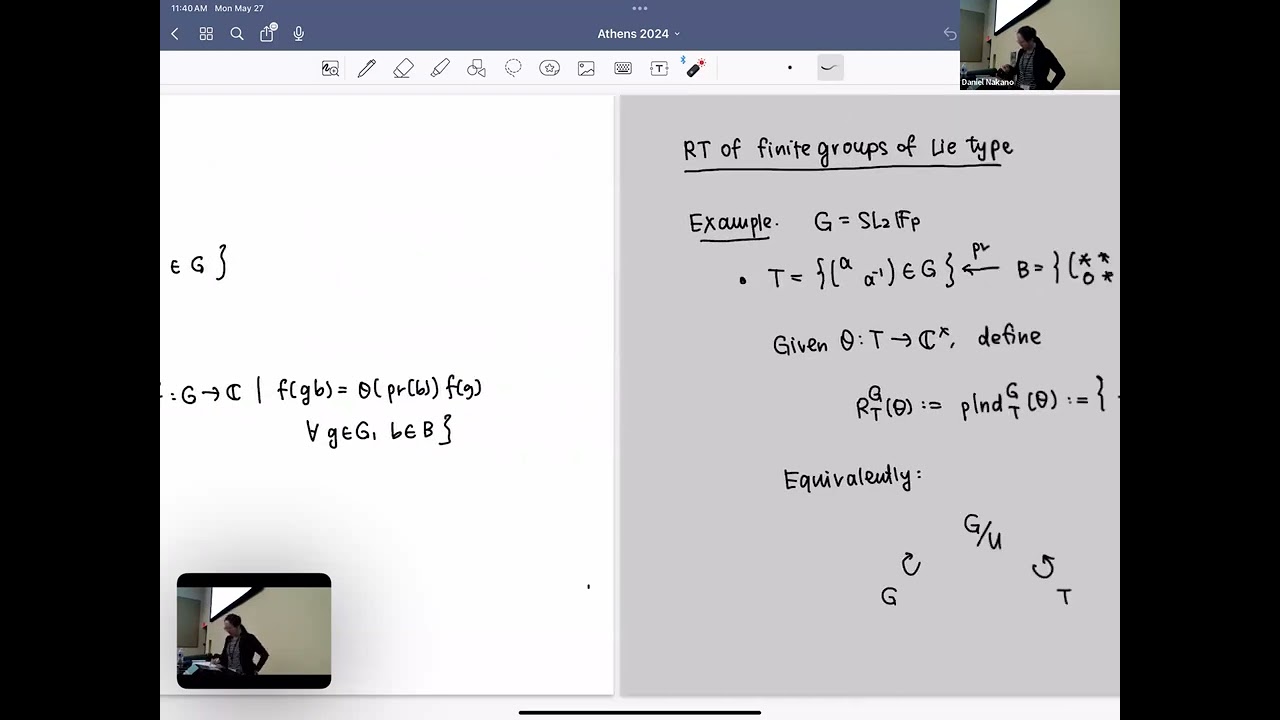 11:40 AM Mon May 27
Athens 2024
Daniel Nakano
∈ G }
: G → ℂ | f(gb) = θ(pr(b)) f(g)
∀ g∈G, b∈B }
RT of finite groups of Lie type
Example. G = SL₂𝔽p
• T = {(a a⁻¹) ∈ G} ←pr B = {(* * 0 *
Given θ: T → ℂ*, define
R_T^G(θ) := pInd_T^G(θ) := {
Equivalently:
G/U
↻ ↺
G T